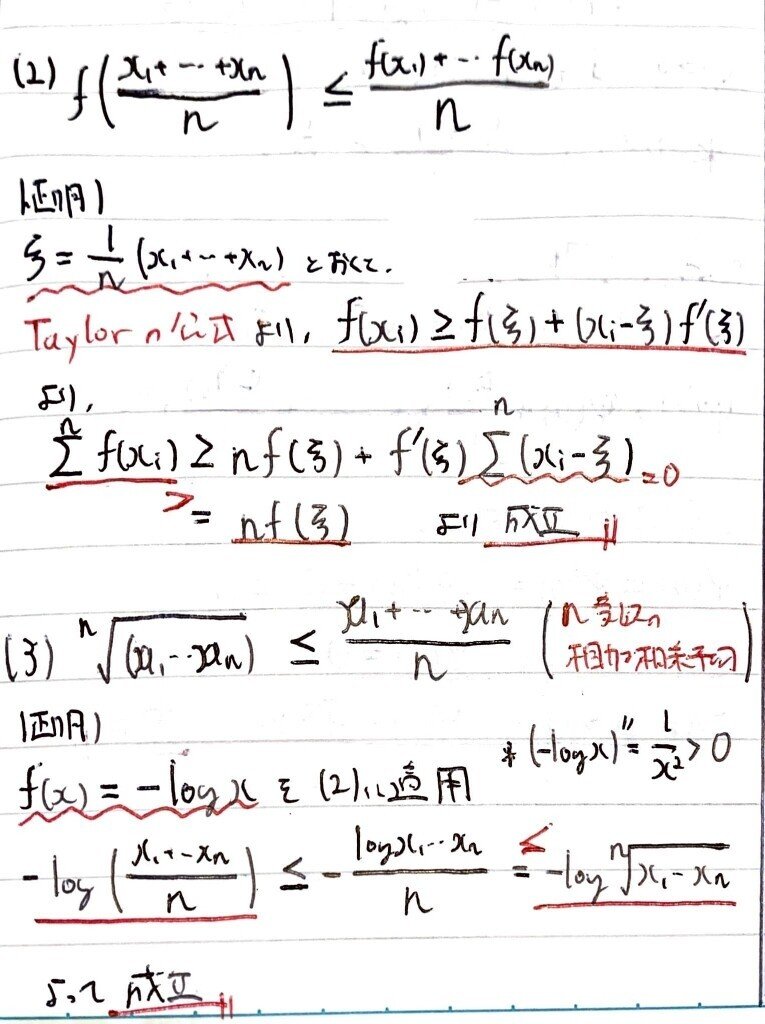 (2) f((x₁+…+xₙ)/n) ≤ (f(x₁)+…f(xₙ))/n
証明)
ξ = 1/n (x₁+…+xₙ) とおくと.
Taylorの公式 より, f(xᵢ) ≥ f(ξ) + (xᵢ-ξ) f′(ξ)
より,
Σⁿ f(xᵢ) ≥ n f(ξ) + f′(ξ) Σⁿ (xᵢ-ξ) =0
> = n f(ξ) より 成立 〃
(3) ⁿ√(x₁…xₙ) ≤ (x₁+…+xₙ)/n (n変数の
相加相乗平均)
証明) * (-log x)″ = 1/x² > 0
f(x) = -log x を (2)に適用
-log((x₁+…xₙ)/n) ≤ -(log x₁…xₙ)/n ≤ = -log ⁿ√(x₁…xₙ)
よって 成立 〃